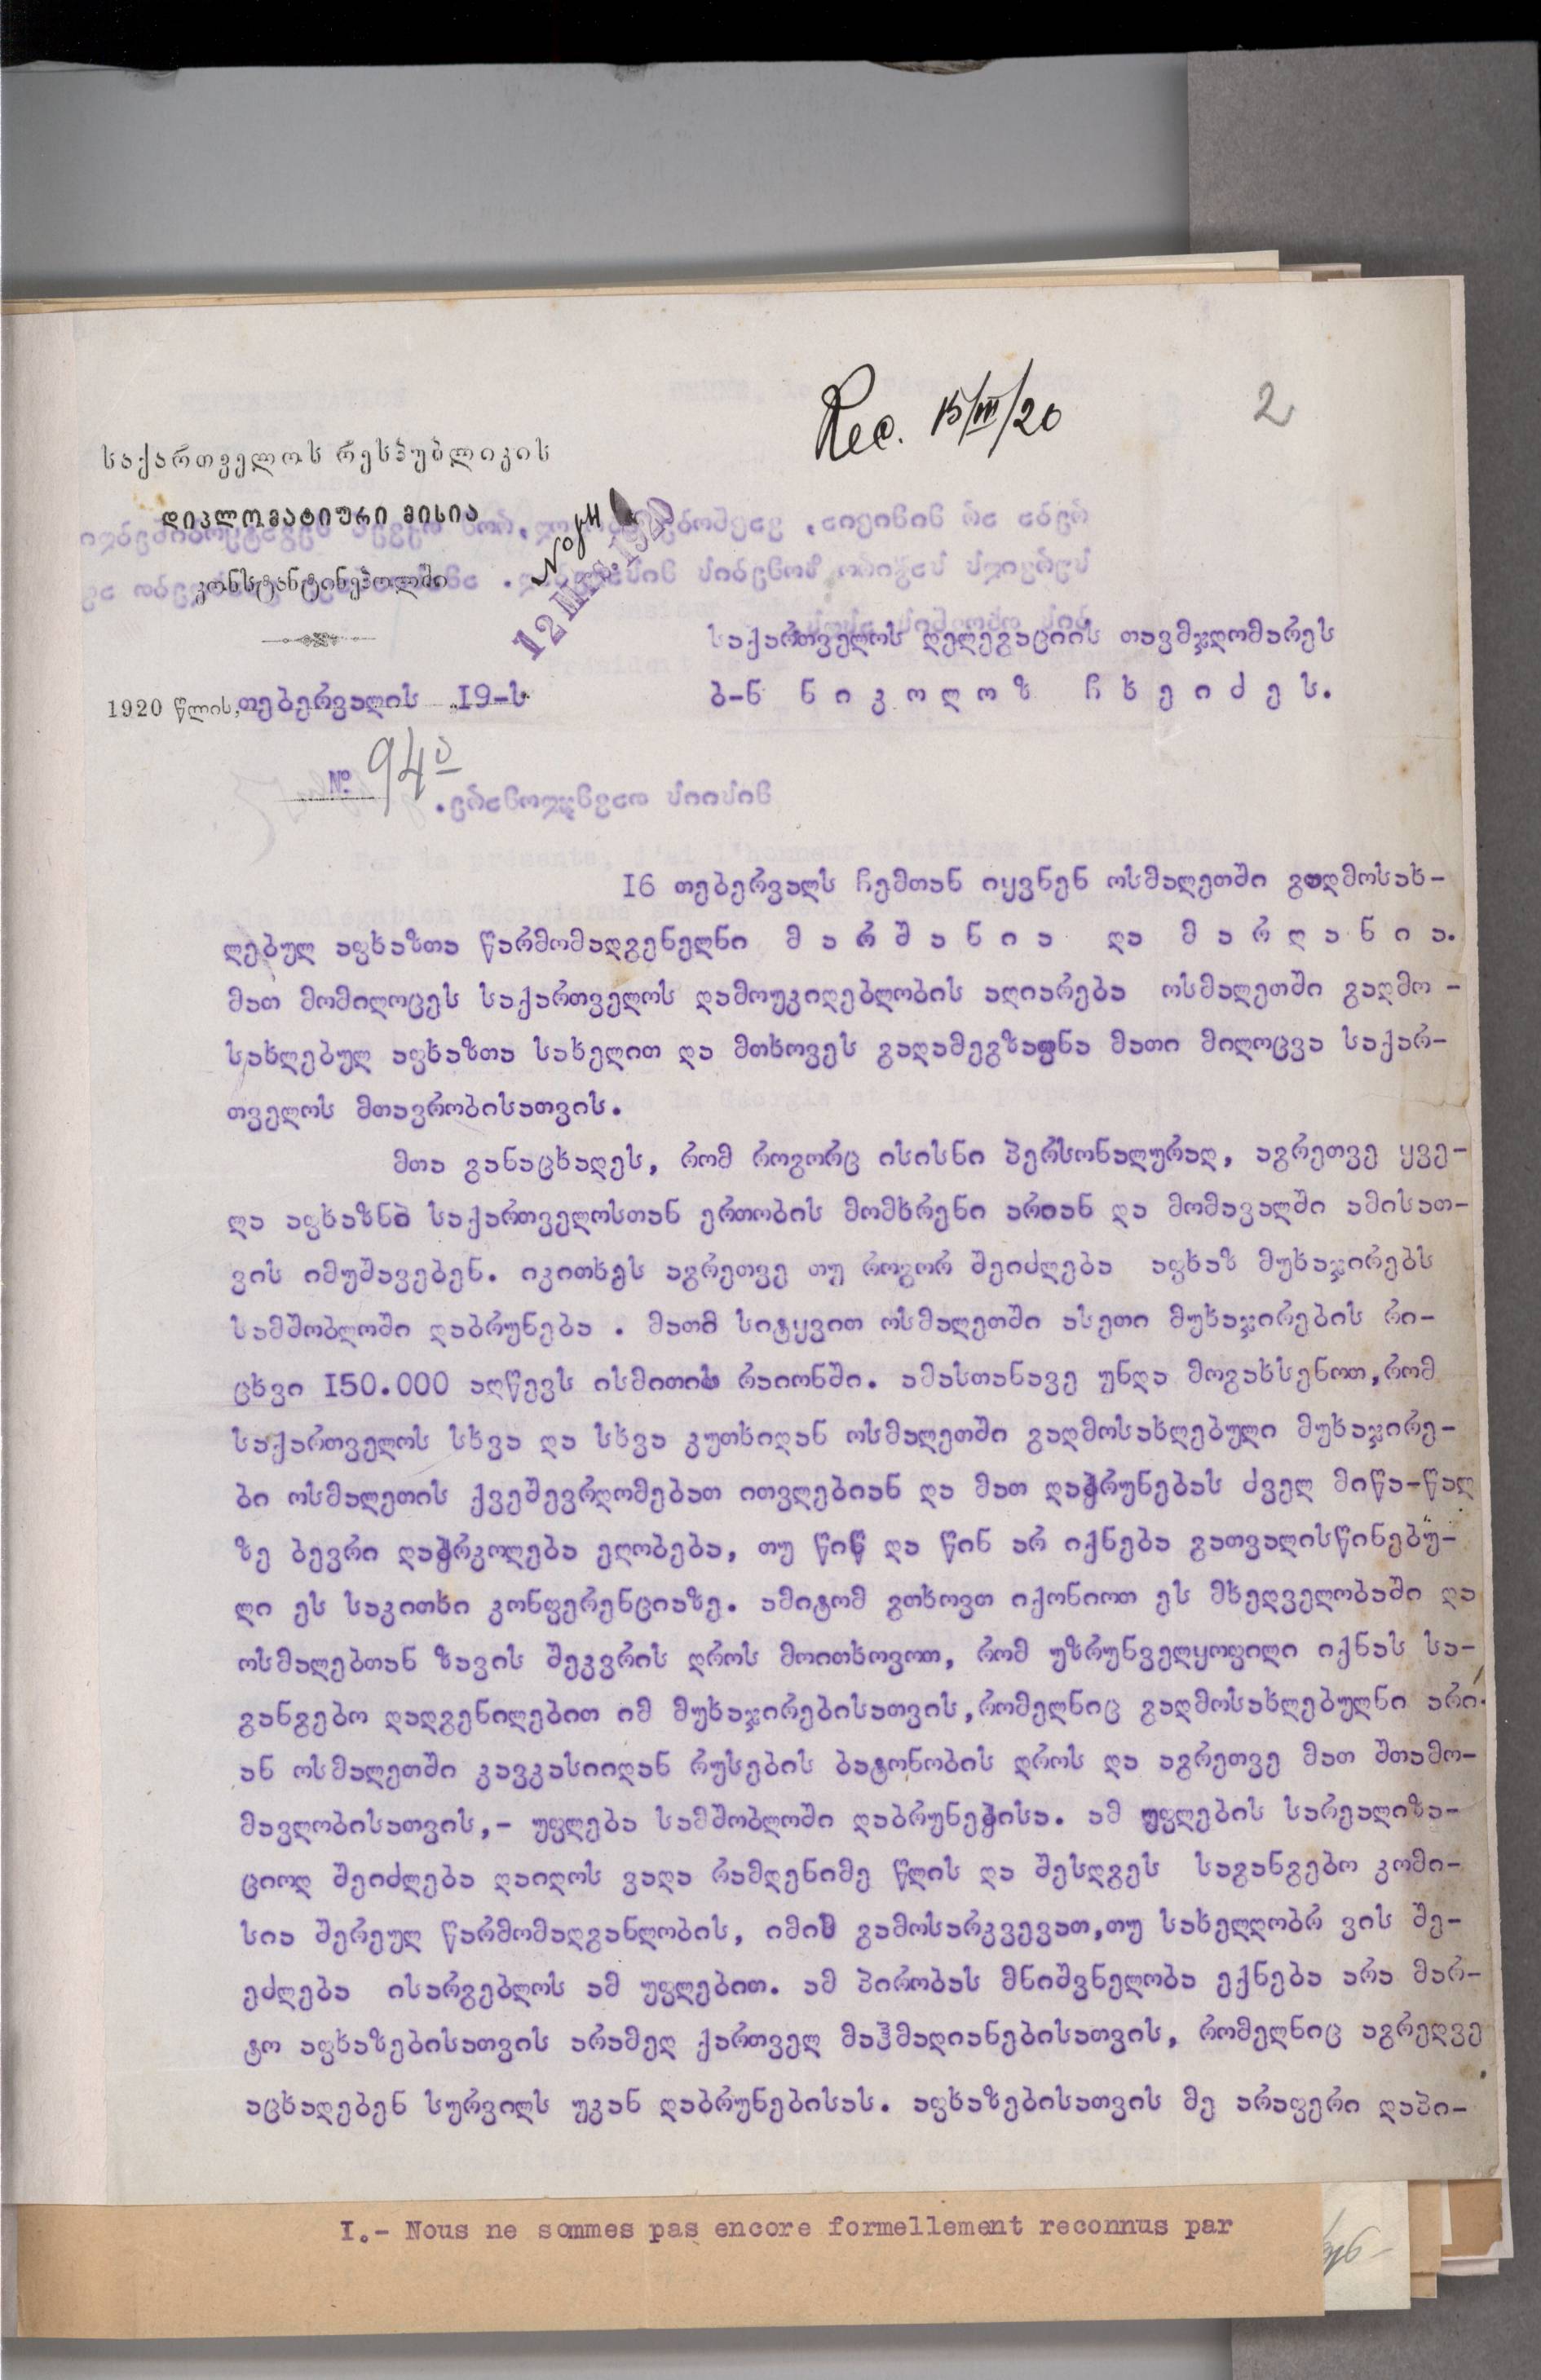 Rec. 15/III/20
2
საქართველოს რესპუბლიკის
დიპლომატიური მისია
კონსტანტინეპოლში
12 MRS. 1920
1920 წლის, თებერვალის 19-ს
№ 94
საქართველოს დელეგაციის თავმჯდომარეს
ბ-ნ ნიკოლოზ ჩხეიძეს.
16 თებერვალს ჩემთან იყვნენ ოსმალეთში გადმოსახ-
ლებულ აფხაზთა წარმომადგენელნი მარშანია და მარღანია.
მათ მომილოცეს საქართველოს დამოუკიდებლობის აღიარება ოსმალეთში გადმო -
სახლებულ აფხაზთა სახელით და მთხოვეს გადამეგზავნა მათი მილოცვა საქარ-
თველოს მთავრობისათვის.
მთა განაცხადეს, რომ როგორც ისისნი პერსონალურად, აგრეთვე ყვე-
ლა აფხაზნი საქართველოსთან ერთობის მომხრენი არიან და მომავალში ამისათ-
ვის იმუშავებენ. იკითხეს აგრეთვე თუ როგორ შეიძლება აფხაზ მუხაჯირებს
სამშობლოში დაბრუნება . მათი სიტყვით ოსმალეთში ასეთი მუხაჯირების რი-
ცხვი 150.000 აღწევს ისმითის რაიონში. ამასთანავე უნდა მოგახსენოთ,რომ
საქართველოს სხვა და სხვა კუთხიდან ოსმალეთში გადმოსახლებული მუხაჯირე-
ბი ოსმალეთის ქვეშევრდომებათ ითვლებიან და მათ დაბრუნებას ძველ მიწა-წალ
ზე ბევრი დაბრკოლება ელობება, თუ წინ და წინ არ იქნება გათვალისწინებუ-
ლი ეს საკითხი კონფერენციაზე. ამიტომ გთხოვთ იქონიოთ ეს მხედველობაში და
ოსმალებთან ზავის შეკვრის დროს მოითხოვოთ, რომ უზრუნველყოფილი იქნას სა-
განგებო დადგენილებით იმ მუხაჯირებისათვის,რომელნიც გადმოსახლებულნი არი-
ან ოსმალეთში კავკასიიდან რუსების ბატონობის დროს და აგრეთვე მათ შთამო-
მავლობისათვის,- უფლება სამშობლოში დაბრუნებისა. ამ უფლების სარეალიზა-
ციოდ შეიძლება დაიდოს ვადა რამდენიმე წლის და შესდგეს საგანგებო კომი-
სია შერეულ წარმომადგანლობის, იმის გამოსარკვევათ,თუ სახელდობრ ვის შე-
ეძლება ისარგებლოს ამ უფლებით. ამ პირობას მნიშვნელობა ექნება არა მარ-
ტო აფხაზებისათვის არამედ ქართველ მაჰმადიანებისათვის, რომელნიც აგრედვე
აცხადებენ სურვილს უკან დაბრუნებისას. აფხაზებისათვის მე არაფერი დაპი-
I.- Nous ne sommes pas encore formellement reconnus par